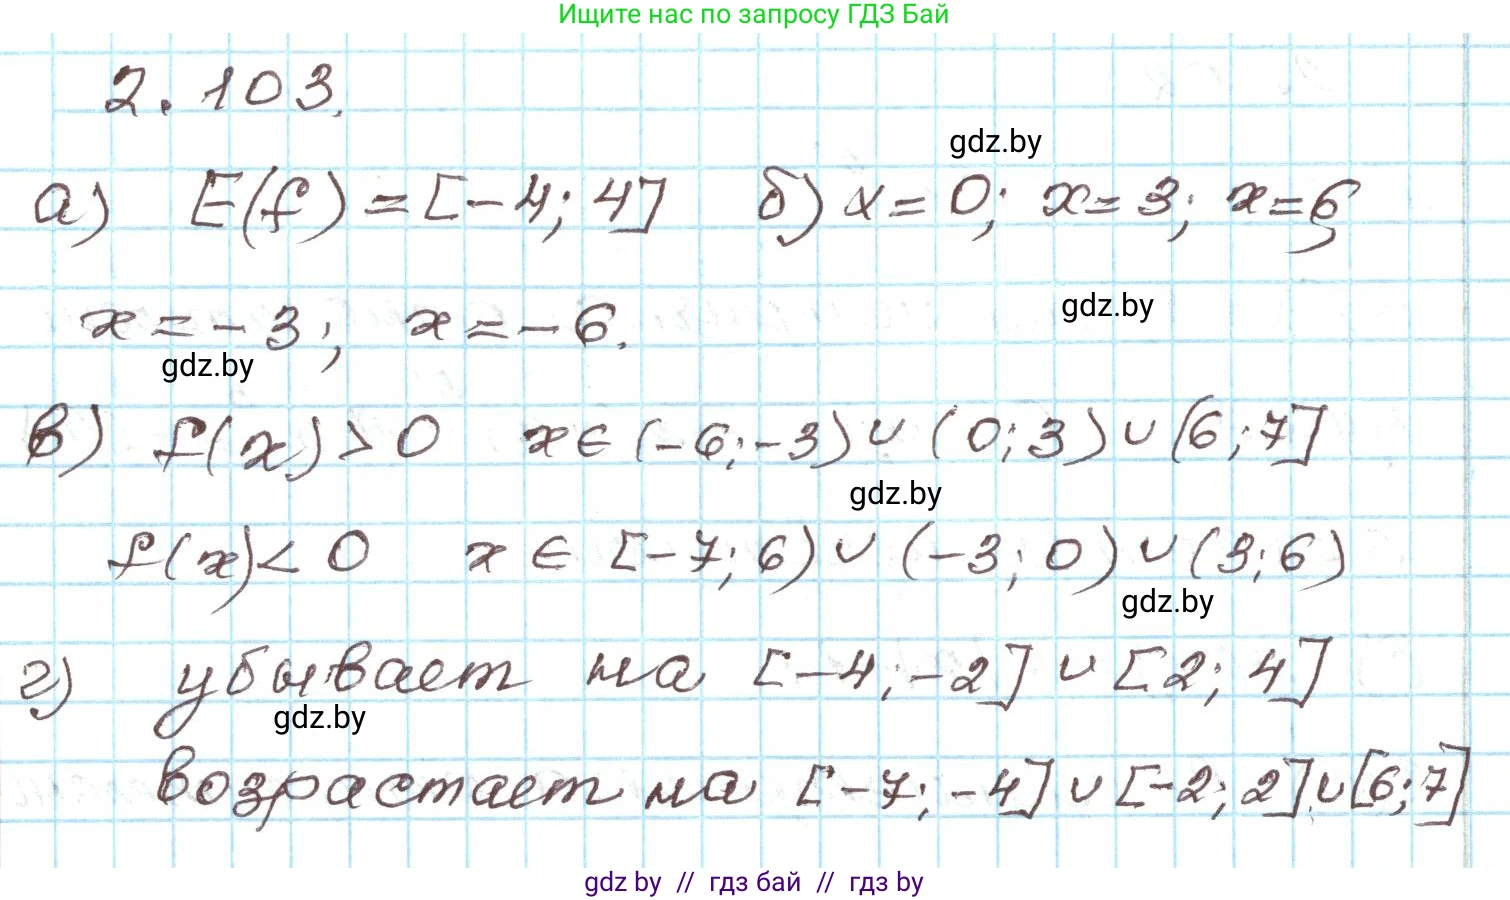 Ищите нас по запросу ГДЗ Бай
2.103.
gdz.by
а) E(f) = [-4; 4] б) x = 0; x = 3; x = 6,
gdz.by
x = -3; x = -6.
gdz.by
в) f(x) > 0 x ∈ (-6; -3) ∪ (0; 3) ∪ (6; 7]
gdz.by
f(x) < 0 x ∈ [-7; 6) ∪ (-3; 0) ∪ (3; 6)
gdz.by
г) убывает на [-4; -2] ∪ [2; 4]
gdz.by
возрастает на [-7; -4] ∪ [-2; 2] ∪ [6; 7]
gdz by // гдз бай // гдз by